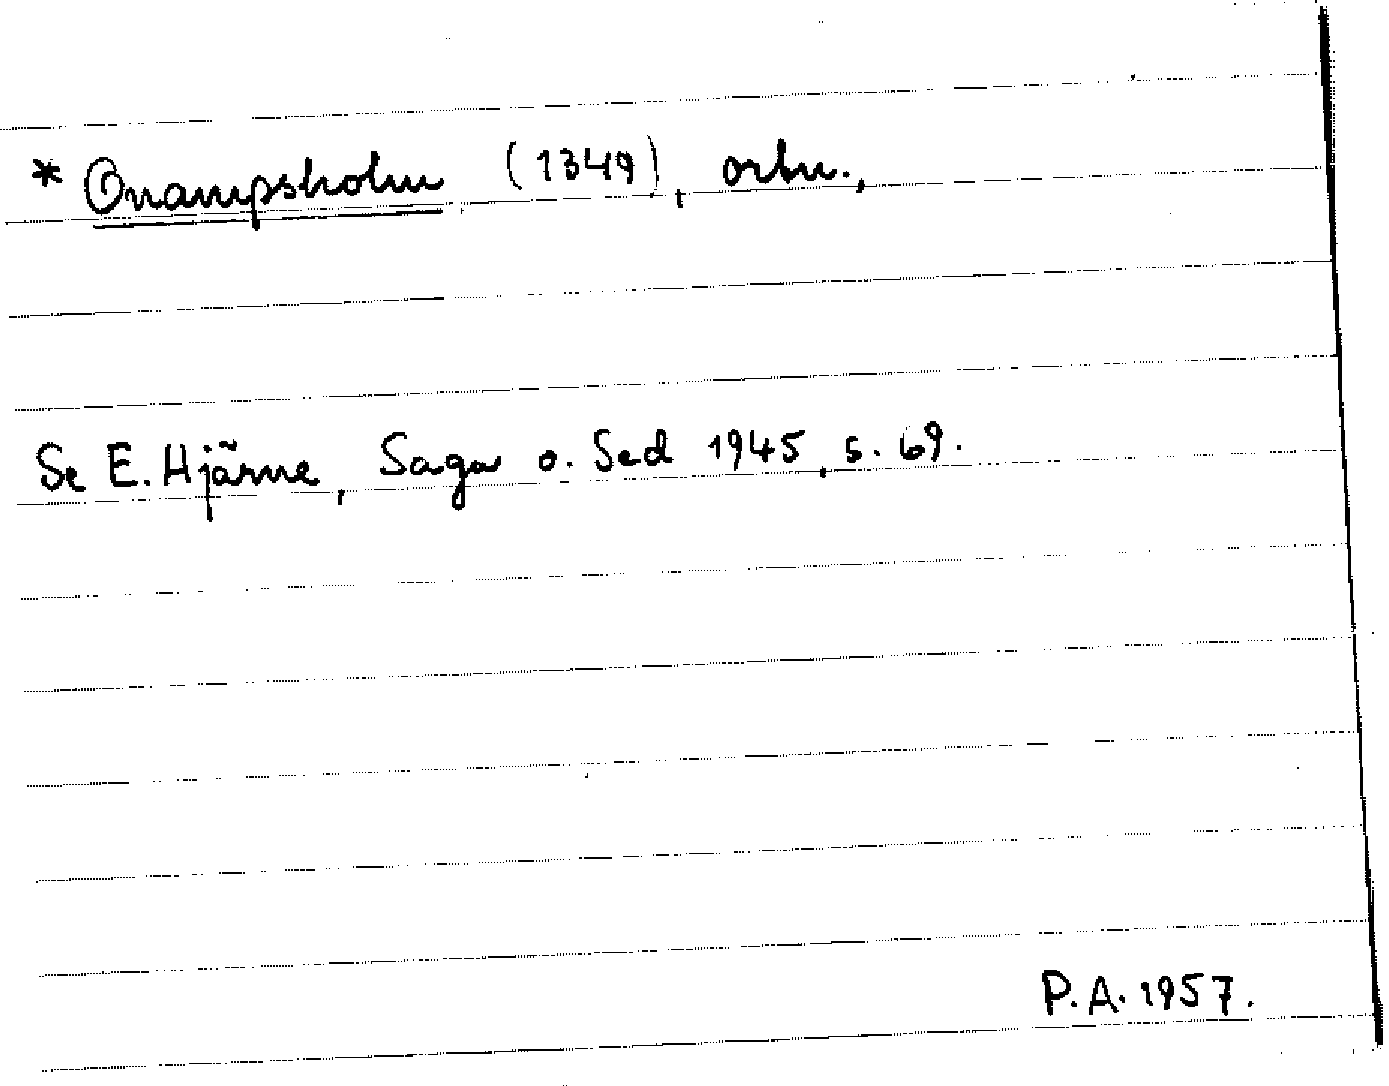 * Onampsholm (1349), ortn.,
Se E. Hjärne, Saga o. Sed 1945, s. 69.
P.A. 1957.